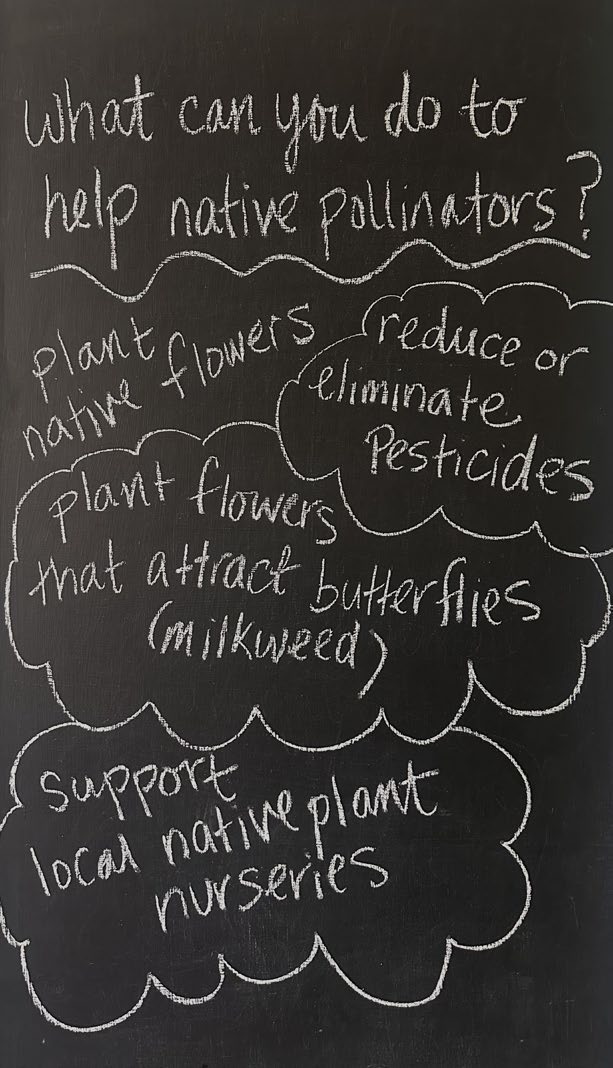 what can you do to
help native pollinators?
plant
native flowers
reduce or
eliminate
Pesticides
plant flowers
that attract butterflies
(milkweed)
support
local native plant
nurseries